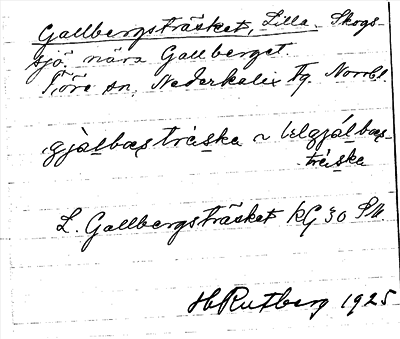 Gallbergsträsket, Lilla. Skogs-
sjö nära Gallberget.
Töre sn, Nederkalix Tg. Norrb.
gjàlbastràska ~ lelgjálbas-
tràska
L. Gallbergsträsket KG 30 SV.
HRutberg 1925